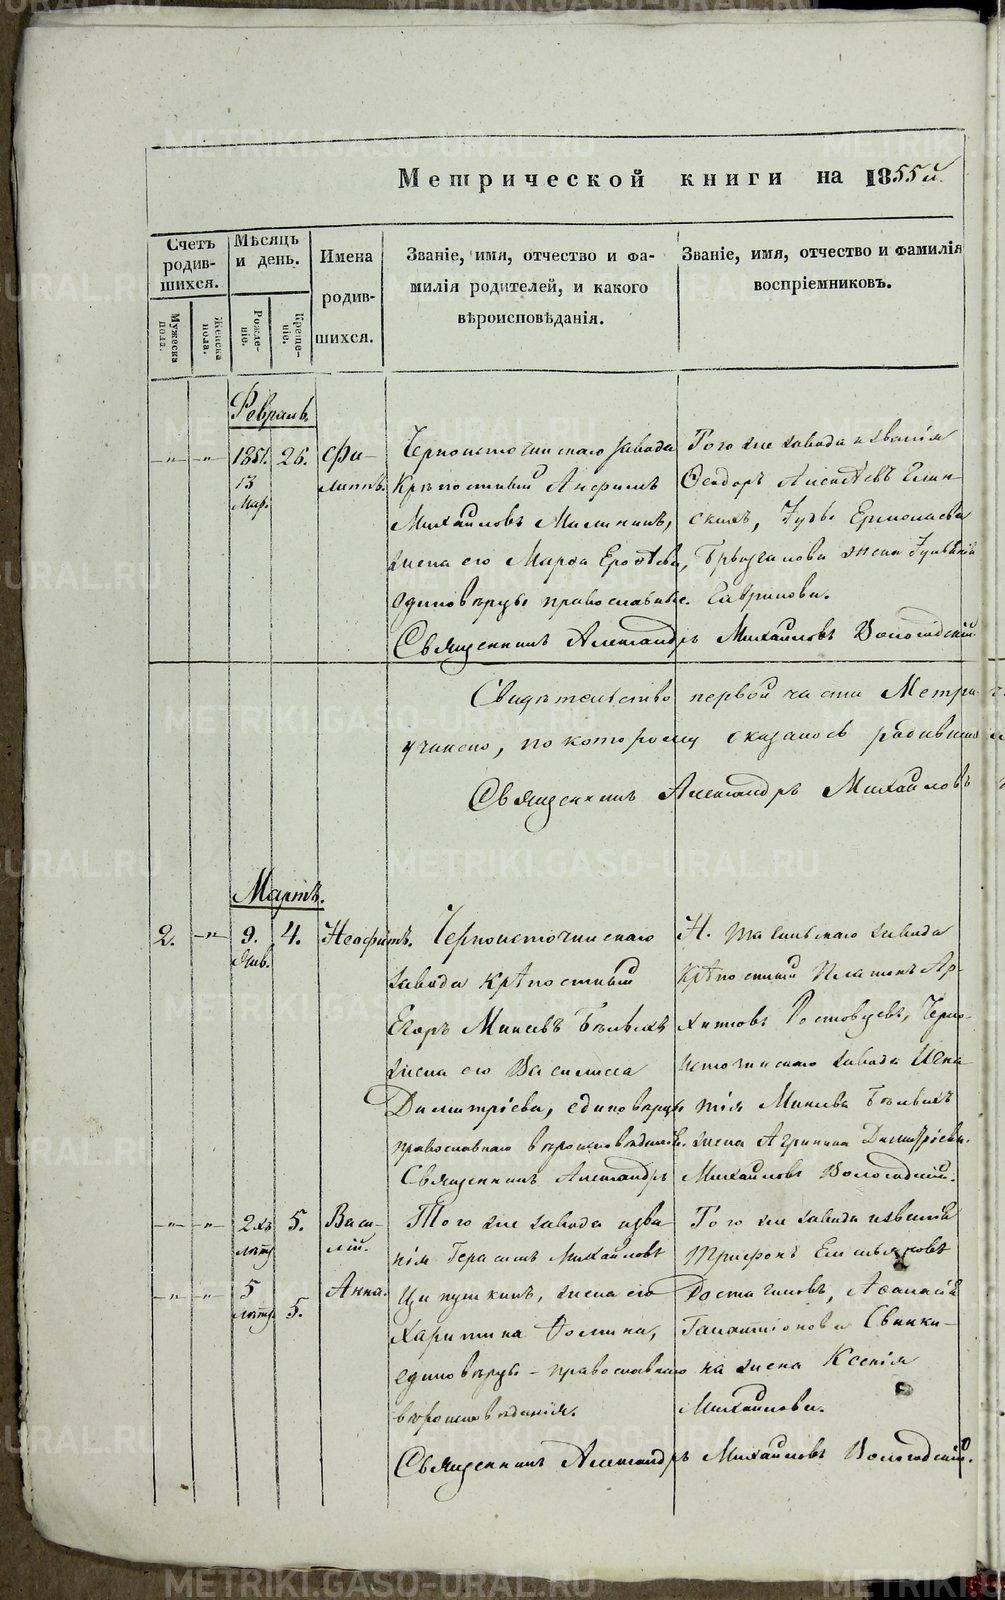 Метрической книги на 1855й.
Счетъ родив-шихся.
Мѣсяцъ и день.
Имена родив-шихся.
Званіе, имя, отчество и фа-
милія родителей, и какого
вѣроисповѣданія.
Званіе, имя, отчество и фамилія
воспріемниковъ.
Мужеска пола.
Женска пола.
Рожде-ніе.
Креще-ніе.
Февраль.
1851. 13 Мар. 26. Фи-
липпъ.
Черноисточинскаго завода
Крѣпостный Анфимъ
Михайловъ Малининъ,
жена его Марѳа
единовѣрцы православные.
Того же завода и званія
Ѳеодоръ
скихъ, Ермолаева
жена
Гаврилова.
Священникъ Александръ Михайловъ Вологодскій.
Свидѣтельство первой части Метри
учинено, по которому оказалось родивших
Священникъ Александръ Михайловъ
Мартъ.
2. -"- 9. Янв. 4. Неофитъ.
Черноисточинскаго
завода крѣпостный
Егоръ Минеевъ Бѣлыхъ
жена его Василисса
Димитріева, единовѣрцы
православнаго вѣроисповѣданія.
Н. Тагильскаго завода
крѣпостный Платонъ Ар-
хиповъ Ростовцевъ, Черно-
источинскаго завода Игна-
тія Минеева Бѣлыхъ
жена Агрипина Димитріева.
Священникъ Александръ Михайловъ Вологодскій.
-"- -"- 2хъ лѣтъ 5. Васи-
лій.
-"- -"- 5 лѣтъ 5. Анна.
Того же завода и зва-
нія Герасимъ Михайловъ
Ципушкинъ, жена его
Харитина Ѳомина,
единовѣрцы - православнаго
вѣроисповѣданія.
Того же завода и званія
Трифонъ Емельяновъ
Аѳанасія
Галактіонова Свинки-
на жена Ксенія
Михайлова.
Священникъ Александръ Михайловъ Вологодскій.
METRIKI.GASO-URAL.RU